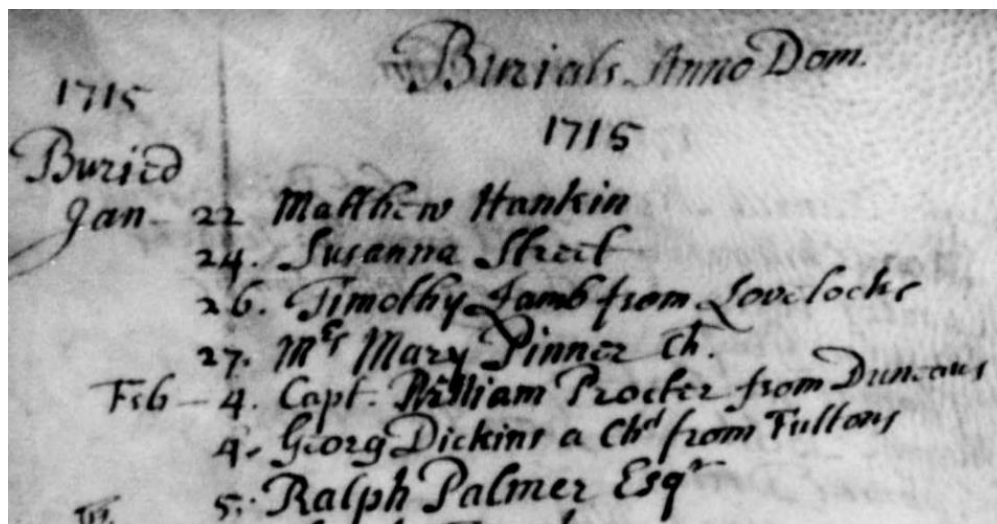 Burials Anno Dom.
1715
1715
Buried
Jan - 22 Matthew Hankin
24. Susanna Street
26. Timothy Lamb from Lovelocks
27. Mrs Mary Pinner Ch.
Feb - 4. Capt. William Procter from Duncans
4. Georg Dickins a Chd from Fultons
5. Ralph Palmer Esqr